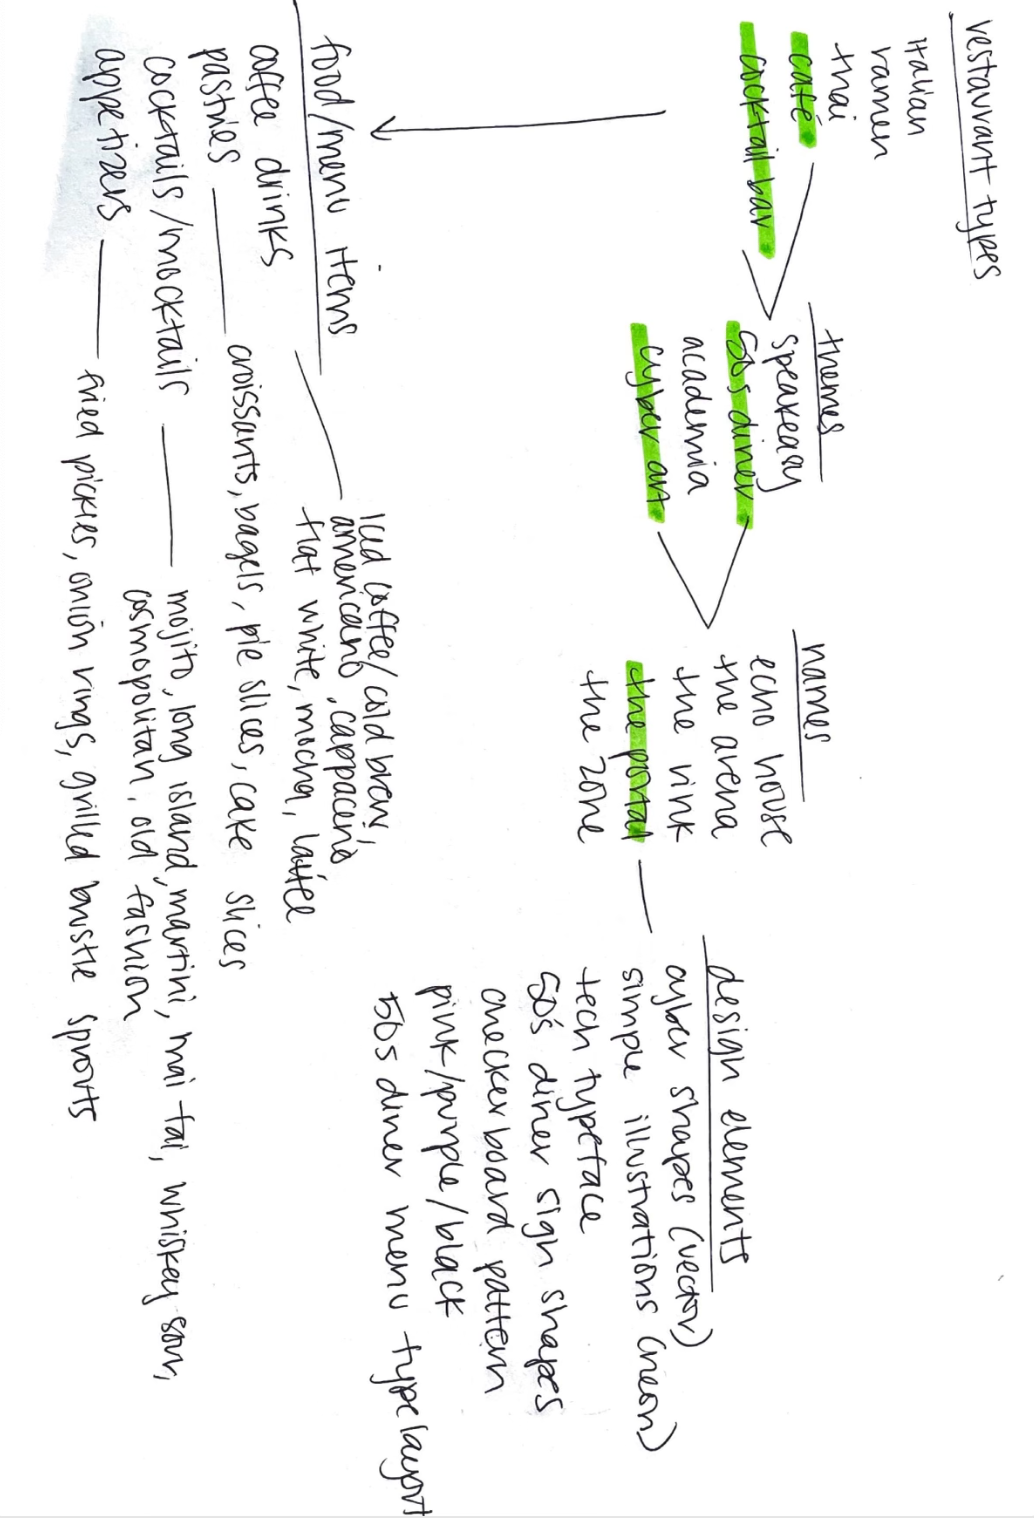 restaurant types
italian
ramen
thai
café
cocktail bar
themes
speakeasy
50s diner
academia
cyber art
names
echo house
the arena
the rink
the portal
the zone
design elements
cyber shapes (vector)
simple illustrations (neon)
tech typeface
50's diner sign shapes
checkerboard pattern
pink/purple/black
50s diner menu type layout
food/menu items
coffee drinks
iced coffee/cold brew,
americano, cappacino
flat white, mocha, lattee
pastries
croissants, bagels, pie slices, cake slices
cocktails/mocktails
mojito, long island, martini, mai tai, whiskey sour,
cosmopolitan, old fashion
appetizers
fried pickles, onion rings, grilled brustle sprouts